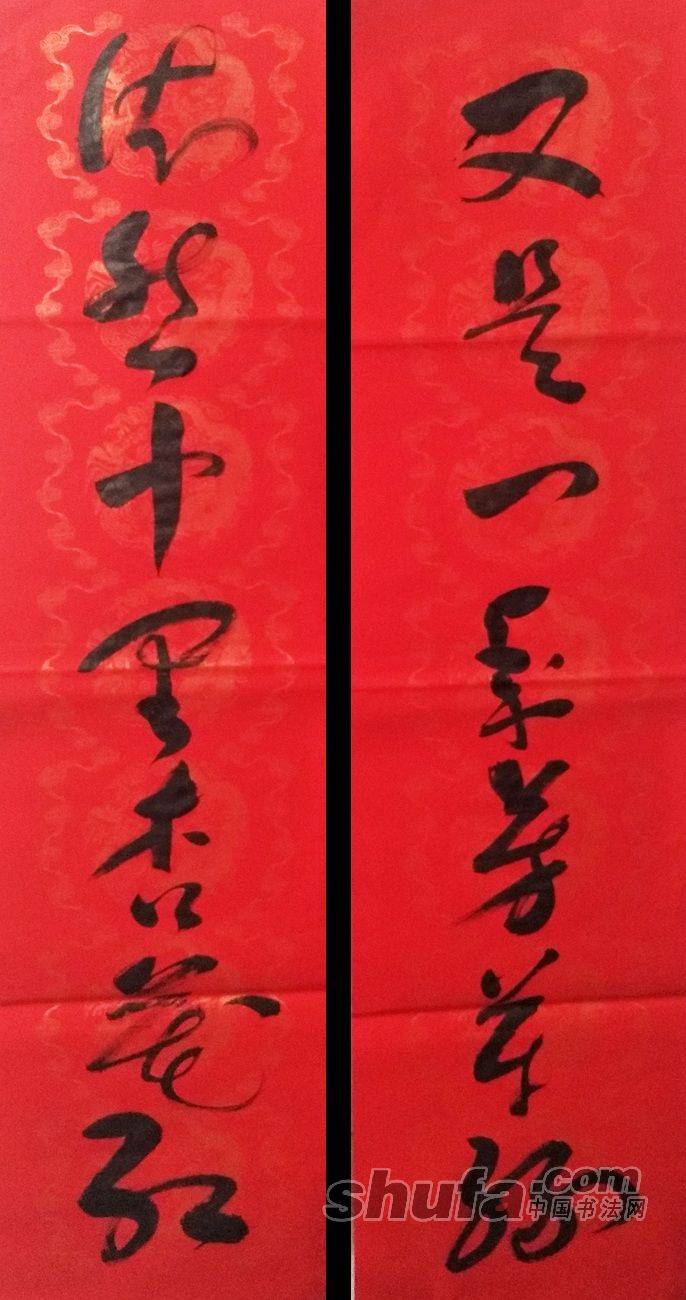 又是一年芳草绿
依然十里杏花红
shufa.com
中国书法网